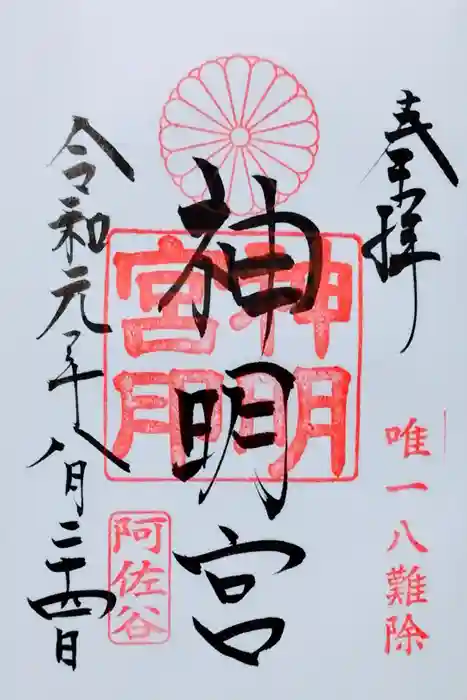 奉拝
唯一八難除
神明宮
神明
宮印
阿佐谷
令和元年八月二十四日